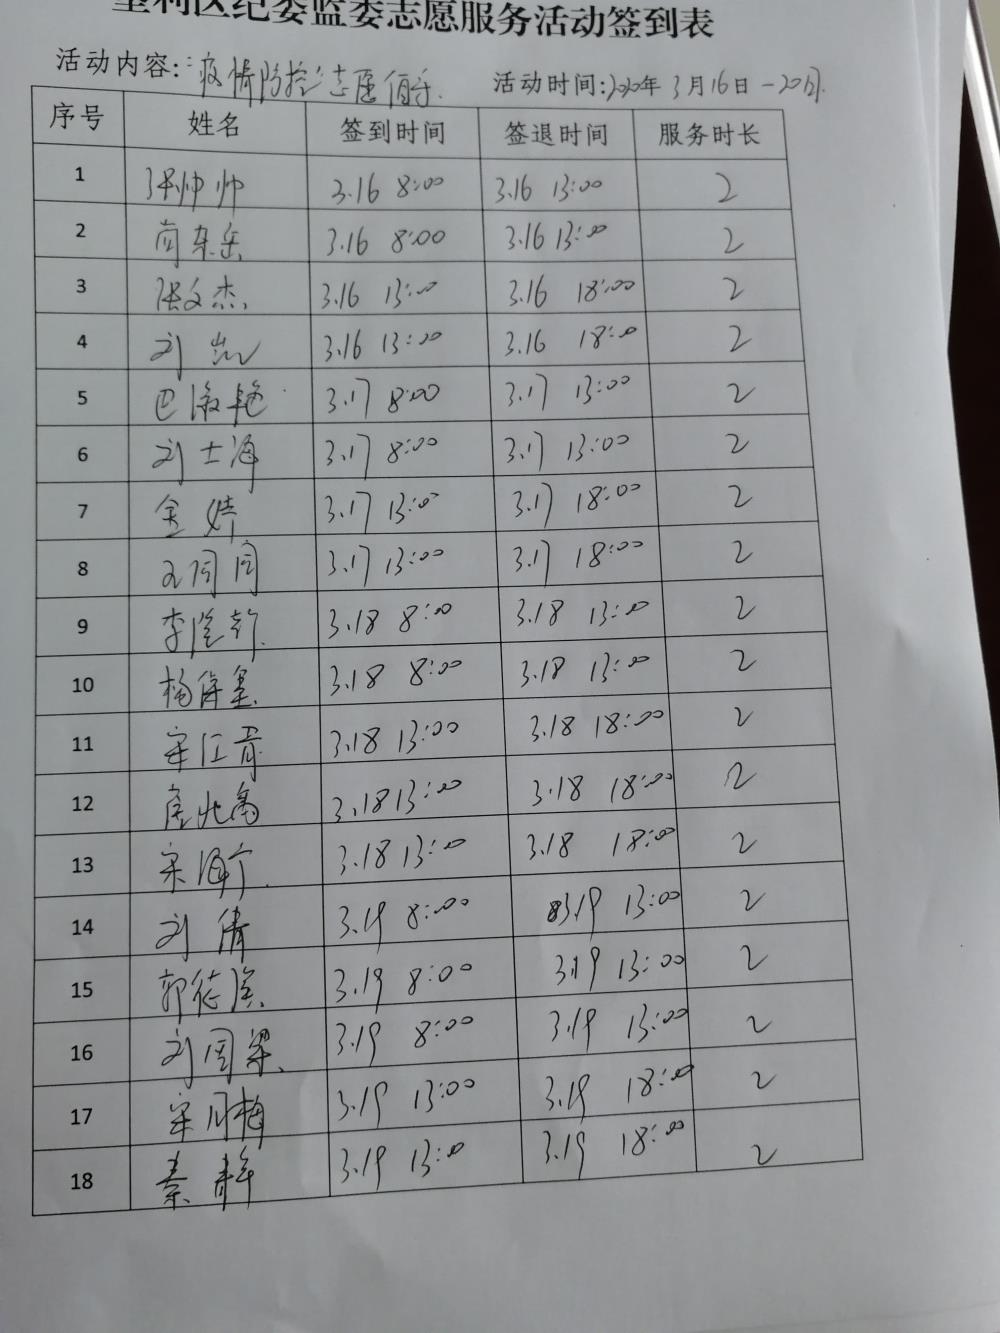 垦利区纪委监委志愿服务活动签到表
活动内容: 疫情防控志愿 活动时间:2020年 3月16日-20日
序号 姓名 签到时间 签退时间 服务时长
1 张帅帅 3.16 8:00 3.16 13:00 2
2 3.16 8:00 3.16 13:00 2
3 张文杰 3.16 13:00 3.16 18:00 2
4 刘凯 3.16 13:00 3.16 18:00 2
5 巴淑艳 3.17 8:00 3.17 13:00 2
6 刘士海 3.17 8:00 3.17 13:00 2
7 金婧 3.17 13:00 3.17 18:00 2
8 3.17 13:00 3.17 18:00 2
9 李 3.18 8:00 3.18 13:00 2
10 杨 3.18 8:00 3.18 13:00 2
11 宋江 3.18 13:00 3.18 18:00 2
12 3.18 13:00 3.18 18:00 2
13 宋海 3.18 13:00 3.18 18:00 2
14 刘倩 3.19 8:00 3.19 13:00 2
15 郭 3.19 8:00 3.19 13:00 2
16 刘国梁 3.19 8:00 3.19 13:00 2
17 宋月梅 3.19 13:00 3.19 18:00 2
18 秦 3.19 13:00 3.19 18:00 2